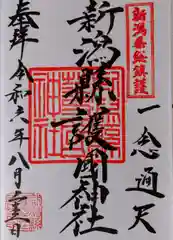 新潟県総鎮護
一念通天
新潟縣護國神社
奉拝 令和六年八月二十三日